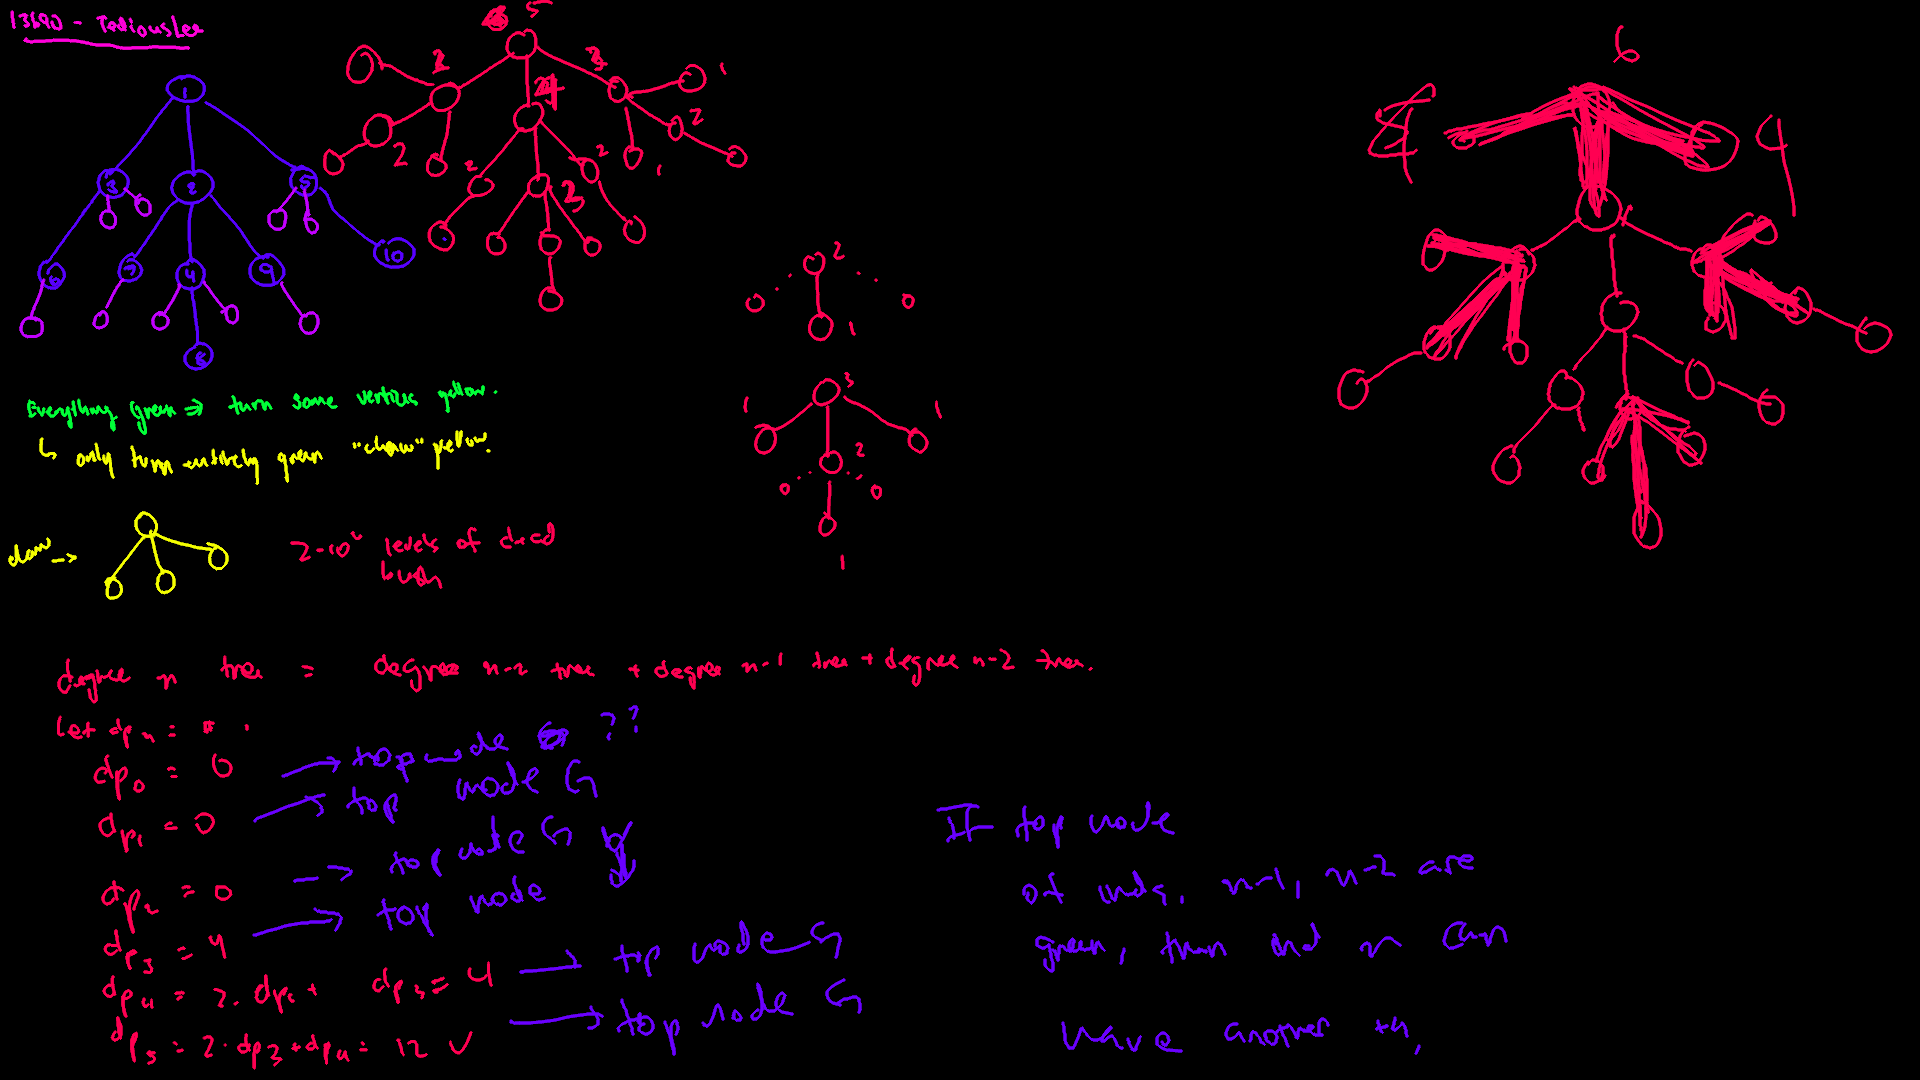 1369D - TediousLee
5
6
2
4
3
1
2
8
4
4
2
2
2
3
1
1
3
2
5
6
7
4
9
10
8
2
1
3
1
1
2
1
Everything green => turn some vertices yellow.
↳ only turn entirely green "claw" yellow.
claw ->
2·10⁶ levels of dead
bush
degree n tree = degree n-2 tree + degree n-1 tree + degree n-2 tree.
Let dpₙ = .
dp₀ = 0 -> top node ??
dp₁ = 0 -> top node G
dp₂ = 0 -> top node G
dp₃ = 4 -> top node Y
dp₄ = 2·dp₂ + dp₃ = 4 -> top node G
dp₅ = 2·dp₃ + dp₄ = 12 ✓ -> top node G
If top node
of inds. n-1, n-2 are
green, then ind n can
have another +4.